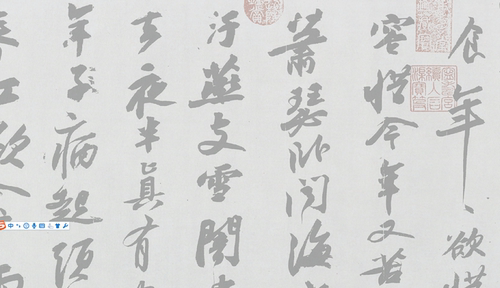 食年〻欲惜
容惜今年又苦
蕭瑟卧聞海
汙燕支雪闇
去夜半真有
年子病起頭
江欲入